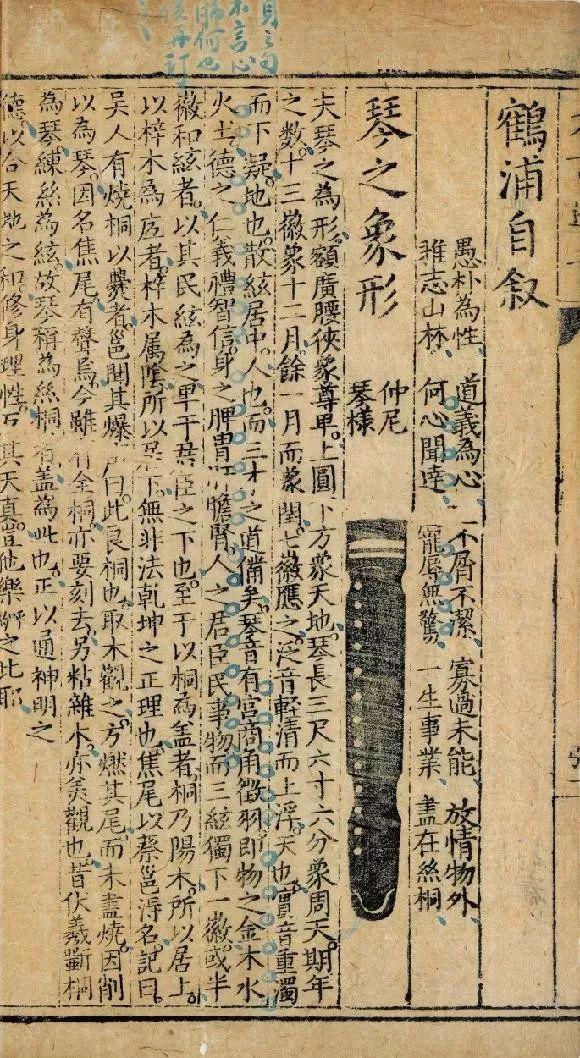 鶴浦自叙
愚朴為性 道義為心 不屑不潔 寡過未能 放情物外
雅志山林 何心聞達 寵辱無驚 一生事業 盡在絲桐
琴之象形
仲尼
琴樣
夫琴之為形。額廣腰俠象尊卑。上圓下方象天地。琴長三尺六寸六分象周天期年
之數。十三徽象十二月。餘一月而象閏。七徽應之。泛音輕清而上浮。天也。實音重濁
而下凝。地也。散絃居中。人也。而三才之道備矣。琴音有宮商角徵羽。即物之金木水
火土。德之仁義禮智信。身之脾胃肝膽腎。人之君臣民事物。而三絃獨下一徽。或半
徽和絃者。以其民絃為之卑于君臣之下也。至于以桐為盖者。桐乃陽木。所以居上。
以梓木為底者。梓木属陰。所以居下。無非法乾坤之正理也。焦尾以蔡邕得名。記曰。
吳人有燒桐以爨者。邕聞其爆 曰。此良桐也。取木觀之。方燃其尾。而未盡燒。因削
以為琴。因名焦尾。有聲焉。今雖有全桐。亦要刻去。另粘雜木。亦美觀也。昔伏羲斲桐
為琴。練絲為絃。故琴稱為絲桐者。盖為此也。正以通神明之
德。以合天地之和。修身理性。 其天真。豈他樂 之比耶
之句
不言心
肺何也
俟再訂